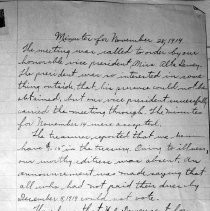 Minutes for November 28, 1919.
The meeting was called to order by our
honorable vice president Miss Alta
The president was so interested in some
thing outside that his presence could not be
obtained, but our vice president successfully
carried the meeting through. The minutes
for November 14 were accepted.
The treasurer reported that we
have in the treasury. Owing to illness,
our worthy editress was absent. An
announcement was made saying that
all who had not paid their dues by
December 5, 1919 could not vote.